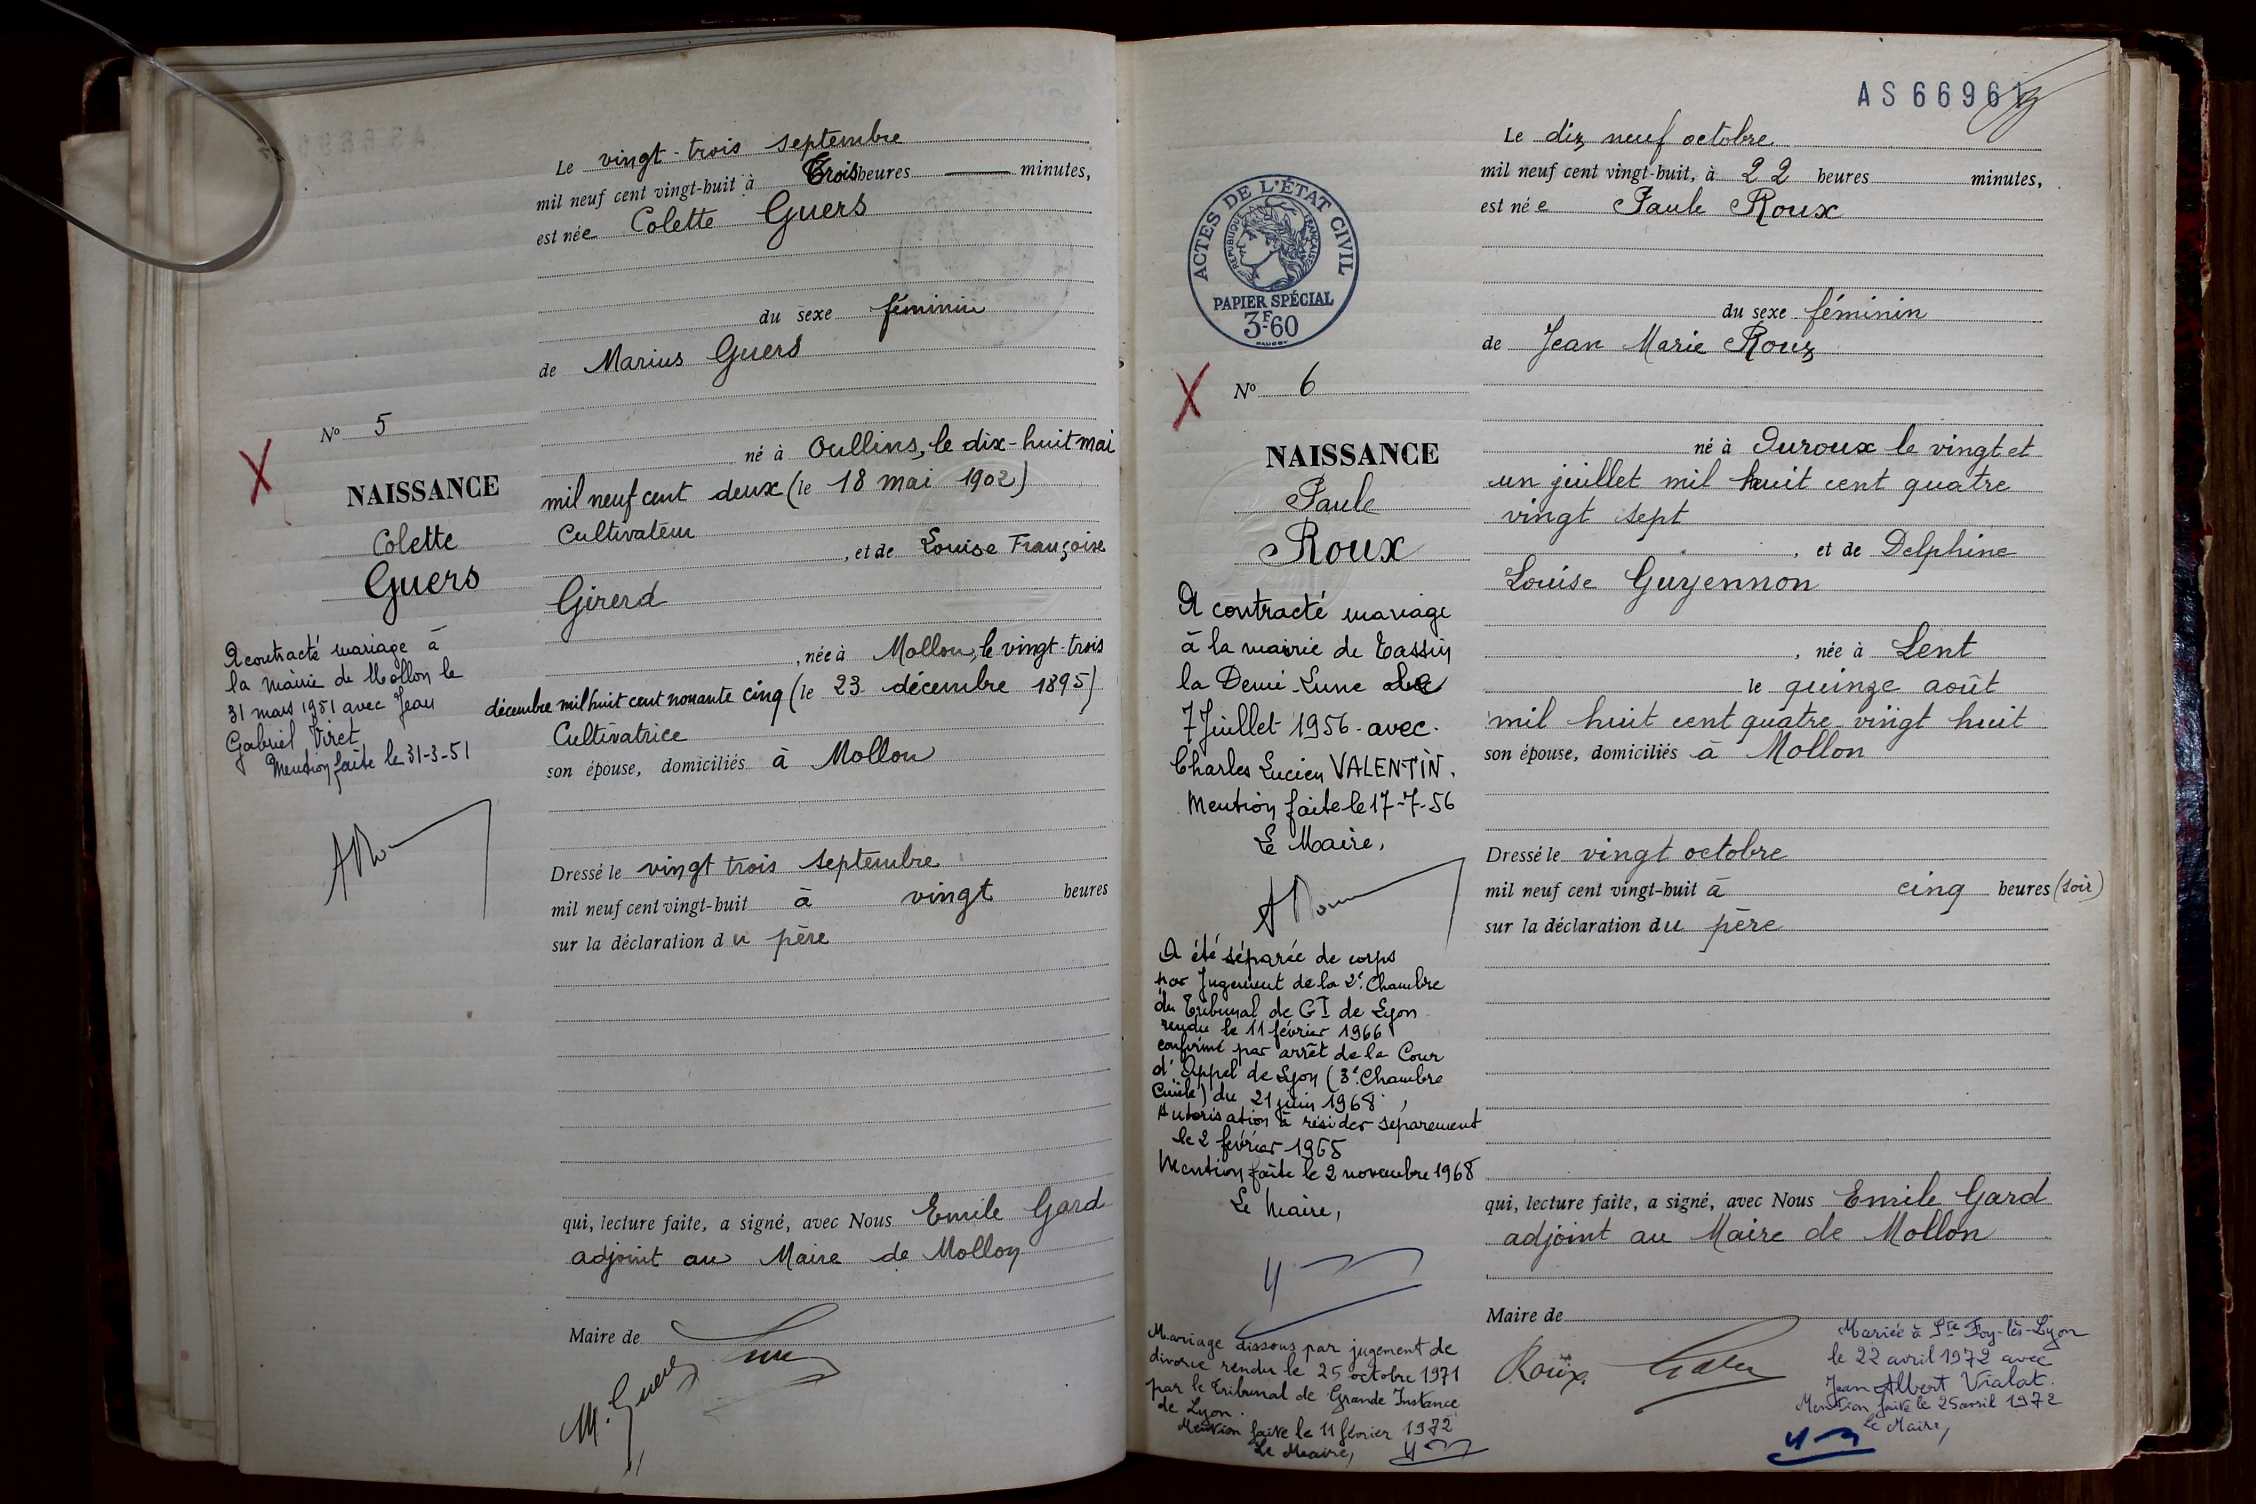 Le vingt-trois septembre
mil neuf cent vingt-huit à Trois heures — minutes,
est née Colette Guers
du sexe féminin
de Marius Guers
Nº 5
NAISSANCE
Colette
Guers
A contracté mariage à
la mairie de Mollon le
31 mars 1951 avec Jean
Gabriel Viret
Mention faite le 31-3-51
né à Oullins, le dix-huit mai
mil neuf cent deux (le 18 mai 1902)
Cultivateur
, et de Louise Françoise
Girerd
, née à Mollon, le vingt-trois
décembre mil huit cent nonante cinq (le 23 décembre 1895)
Cultivatrice
son épouse, domiciliés à Mollon
Dressé le vingt trois septembre
mil neuf cent vingt-huit à vingt heures
sur la déclaration du père
qui, lecture faite, a signé, avec Nous Emile Gard
adjoint au Maire de Mollon
Maire de
M. Guers
AS 66961
Le dix neuf octobre
mil neuf cent vingt-huit, à 22 heures minutes,
est née Paule Roux
ACTES DE L'ÉTAT CIVIL
RÉPUBLIQUE FRANÇAISE
PAPIER SPÉCIAL
3F-60
du sexe féminin
de Jean Marie Roux
Nº 6
NAISSANCE
Paule
Roux
A contracté mariage
à la mairie de Tassin
la Demi-Lune le
7 Juillet 1956 avec
Charles Lucien VALENTIN.
Mention faite le 17-7-56
Le Maire,
A été séparée de corps
par Jugement de la 2e Chambre
du Tribunal de GI de Lyon
rendu le 11 février 1966
confirmé par arrêt de la Cour
d'Appel de Lyon (3e Chambre
Civile) du 21 juin 1968,
Autorisation à résider séparement
le 2 février 1965
Mention faite le 2 novembre 1968
Le Maire,
Mariage dissous par jugement de
divorce rendu le 25 octobre 1971
par le Tribunal de Grande Instance
de Lyon.
Mention faite le 11 février 1972
Le Maire,
né à Ouroux le vingt et
un juillet mil huit cent quatre
vingt sept
, et de Delphine
Louise Guyennon
, née à Lent
le quinze août
mil huit cent quatre vingt huit
son épouse, domiciliés à Mollon
Dressé le vingt octobre
mil neuf cent vingt-huit à cinq heures (soir)
sur la déclaration du père
qui, lecture faite, a signé, avec Nous Emile Gard
adjoint au Maire de Mollon
Maire de
Roux
Mariée à Ste Foy-lès-Lyon
le 22 avril 1972 avec
Jean Albert Vialat.
Mention faite le 25 avril 1972
Le Maire,